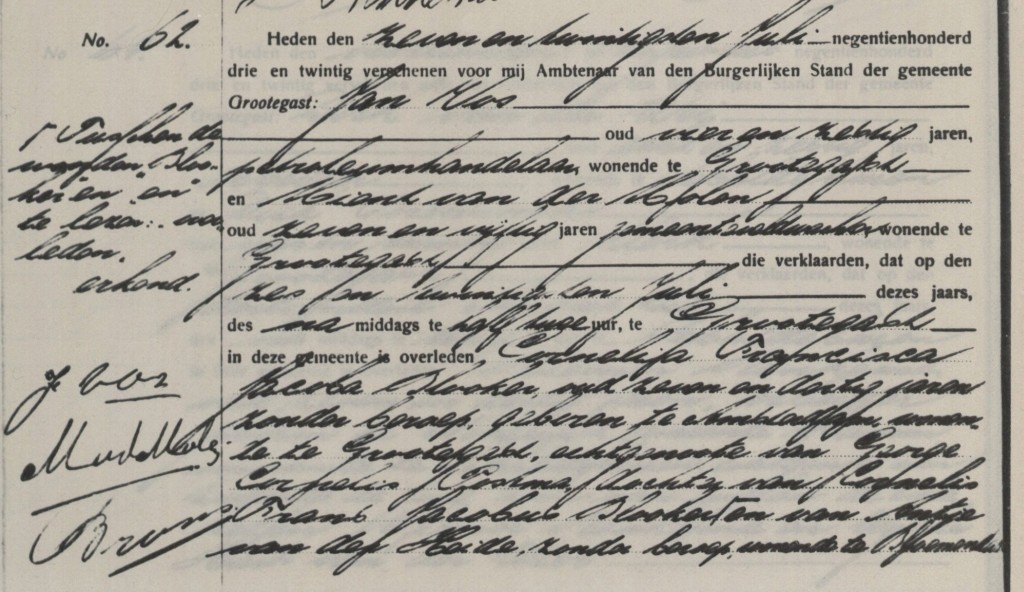 No. 62.
Heden den zeven en twintigsten Juli negentienhonderd
drie en twintig verschenen voor mij Ambtenaar van den Burgerlijken Stand der gemeente
Grootegast: Jan Vos
oud vier en zestig jaren,
petroleumhandelaar, wonende te Grootegast
en van der Molen
oud zeven en vijftig jaren gemeenteveldwachter wonende te
Grootegast die verklaarden, dat op den
zes en twintigsten Juli dezes jaars,
des na middags te half twee uur, te Grootegast
in deze gemeente is overleden Cornelia Francisca
Jacoba Blooker, oud zeven en dertig jaren
zonder beroep, geboren te Amsterdam, wonen-
de te Grootegast, echtgenoote van George
Cornelis Postma, dochter van Cornelis
Frans Jacobus Blooker en van Antje
van der Heide, zonder beroep, wonende te Bloemendaal
Tusschen de
woorden "Bloo-
ker" en "en"
te lezen: over-
leden.
erkend.
J Vos